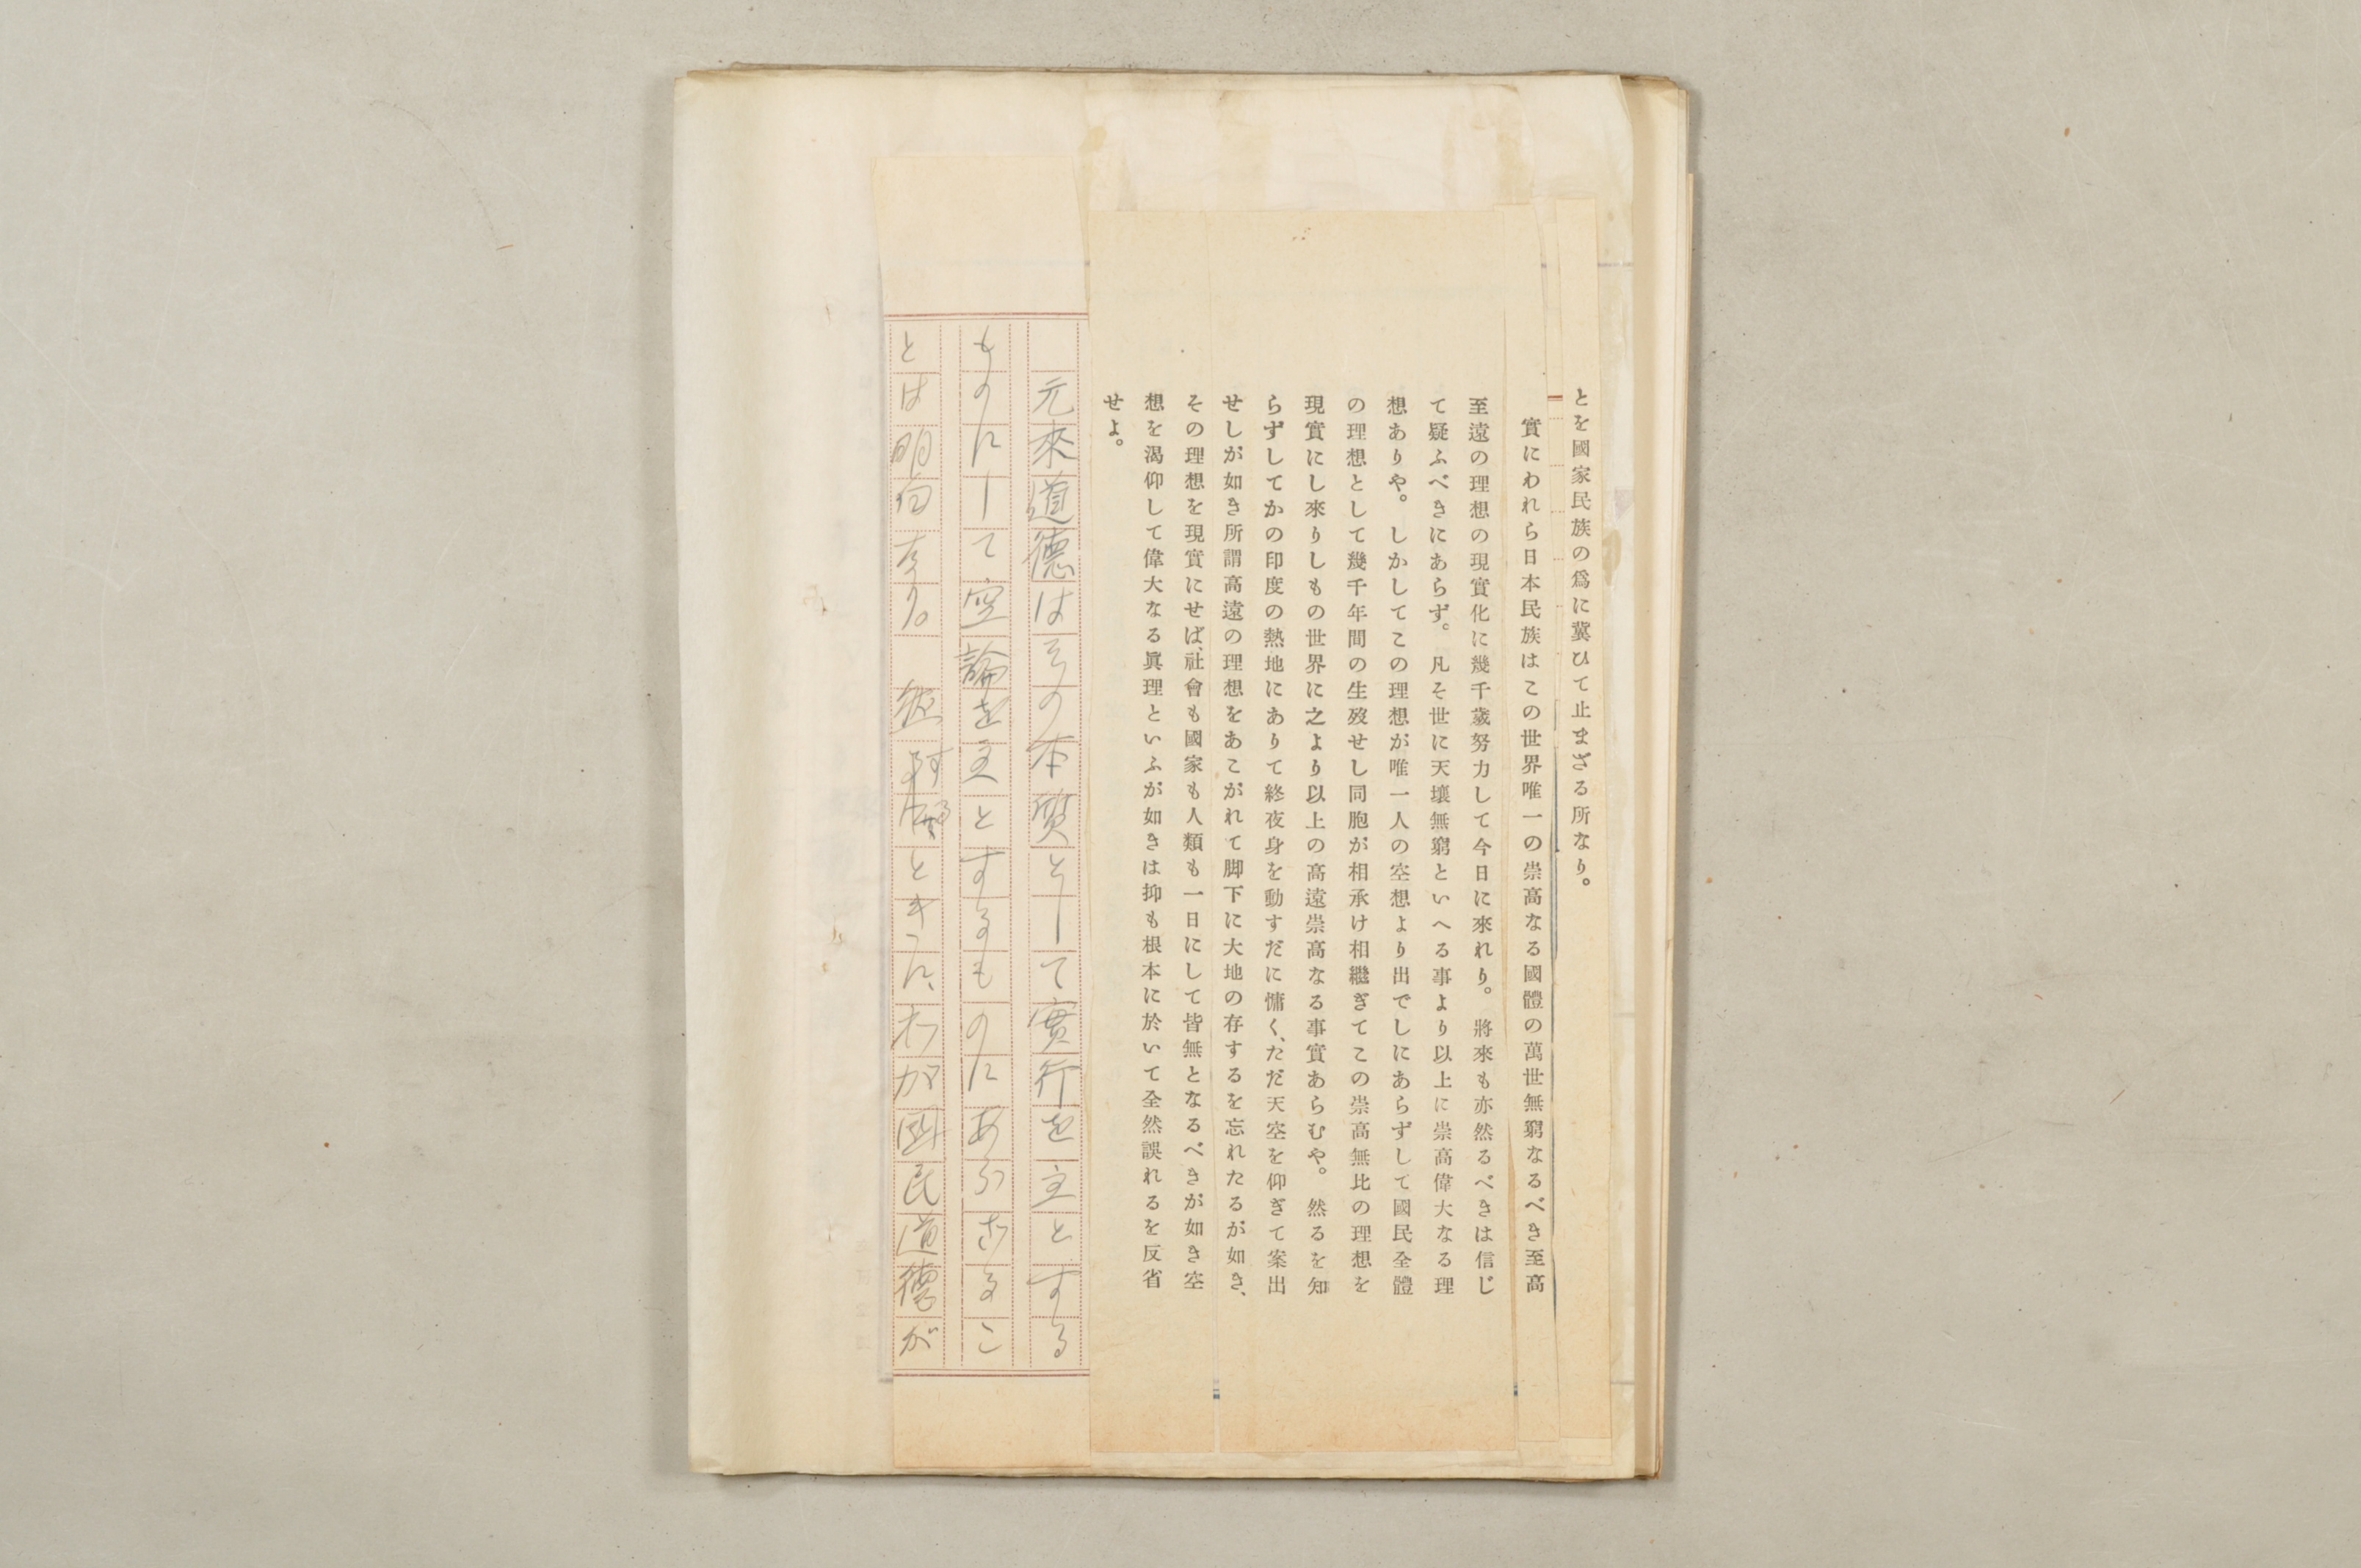 とを國家民族の爲に冀ひて止まざる所なり。
實にわれら日本民族はこの世界唯一の崇高なる國體の萬世無窮なるべき至高
至遠の理想の現實化に幾千歳努力して今日に來れり。將來も亦然るべきは信じ
て疑ふべきにあらず。凡そ世に天壤無窮といへる事より以上に崇高偉大なる理
想ありや。しかしてこの理想が唯一人の空想より出でしにあらずして國民全體
の理想として幾千年間の生歿せし同胞が相承け相繼ぎてこの崇高無比の理想を
現實にし來りしもの世界に之より以上の高遠崇高なる事實あらむや。然るを知
らずしてかの印度の熱地にありて終夜身を動すだに慵く、ただ天空を仰ぎて案出
せしが如き所謂高遠の理想をあこがれて脚下に大地の存するを忘れたるが如き、
その理想を現實にせば、社會も國家も人類も一日にして皆無となるべきが如き空
想を渇仰して偉大なる眞理といふが如きは抑も根本に於いて全然誤れるを反省
せよ。
元來道德はその本質として實行を主とする
ものにして空論を主とするものにあらざるこ
とは明白なり。ときに、わが国民道德が